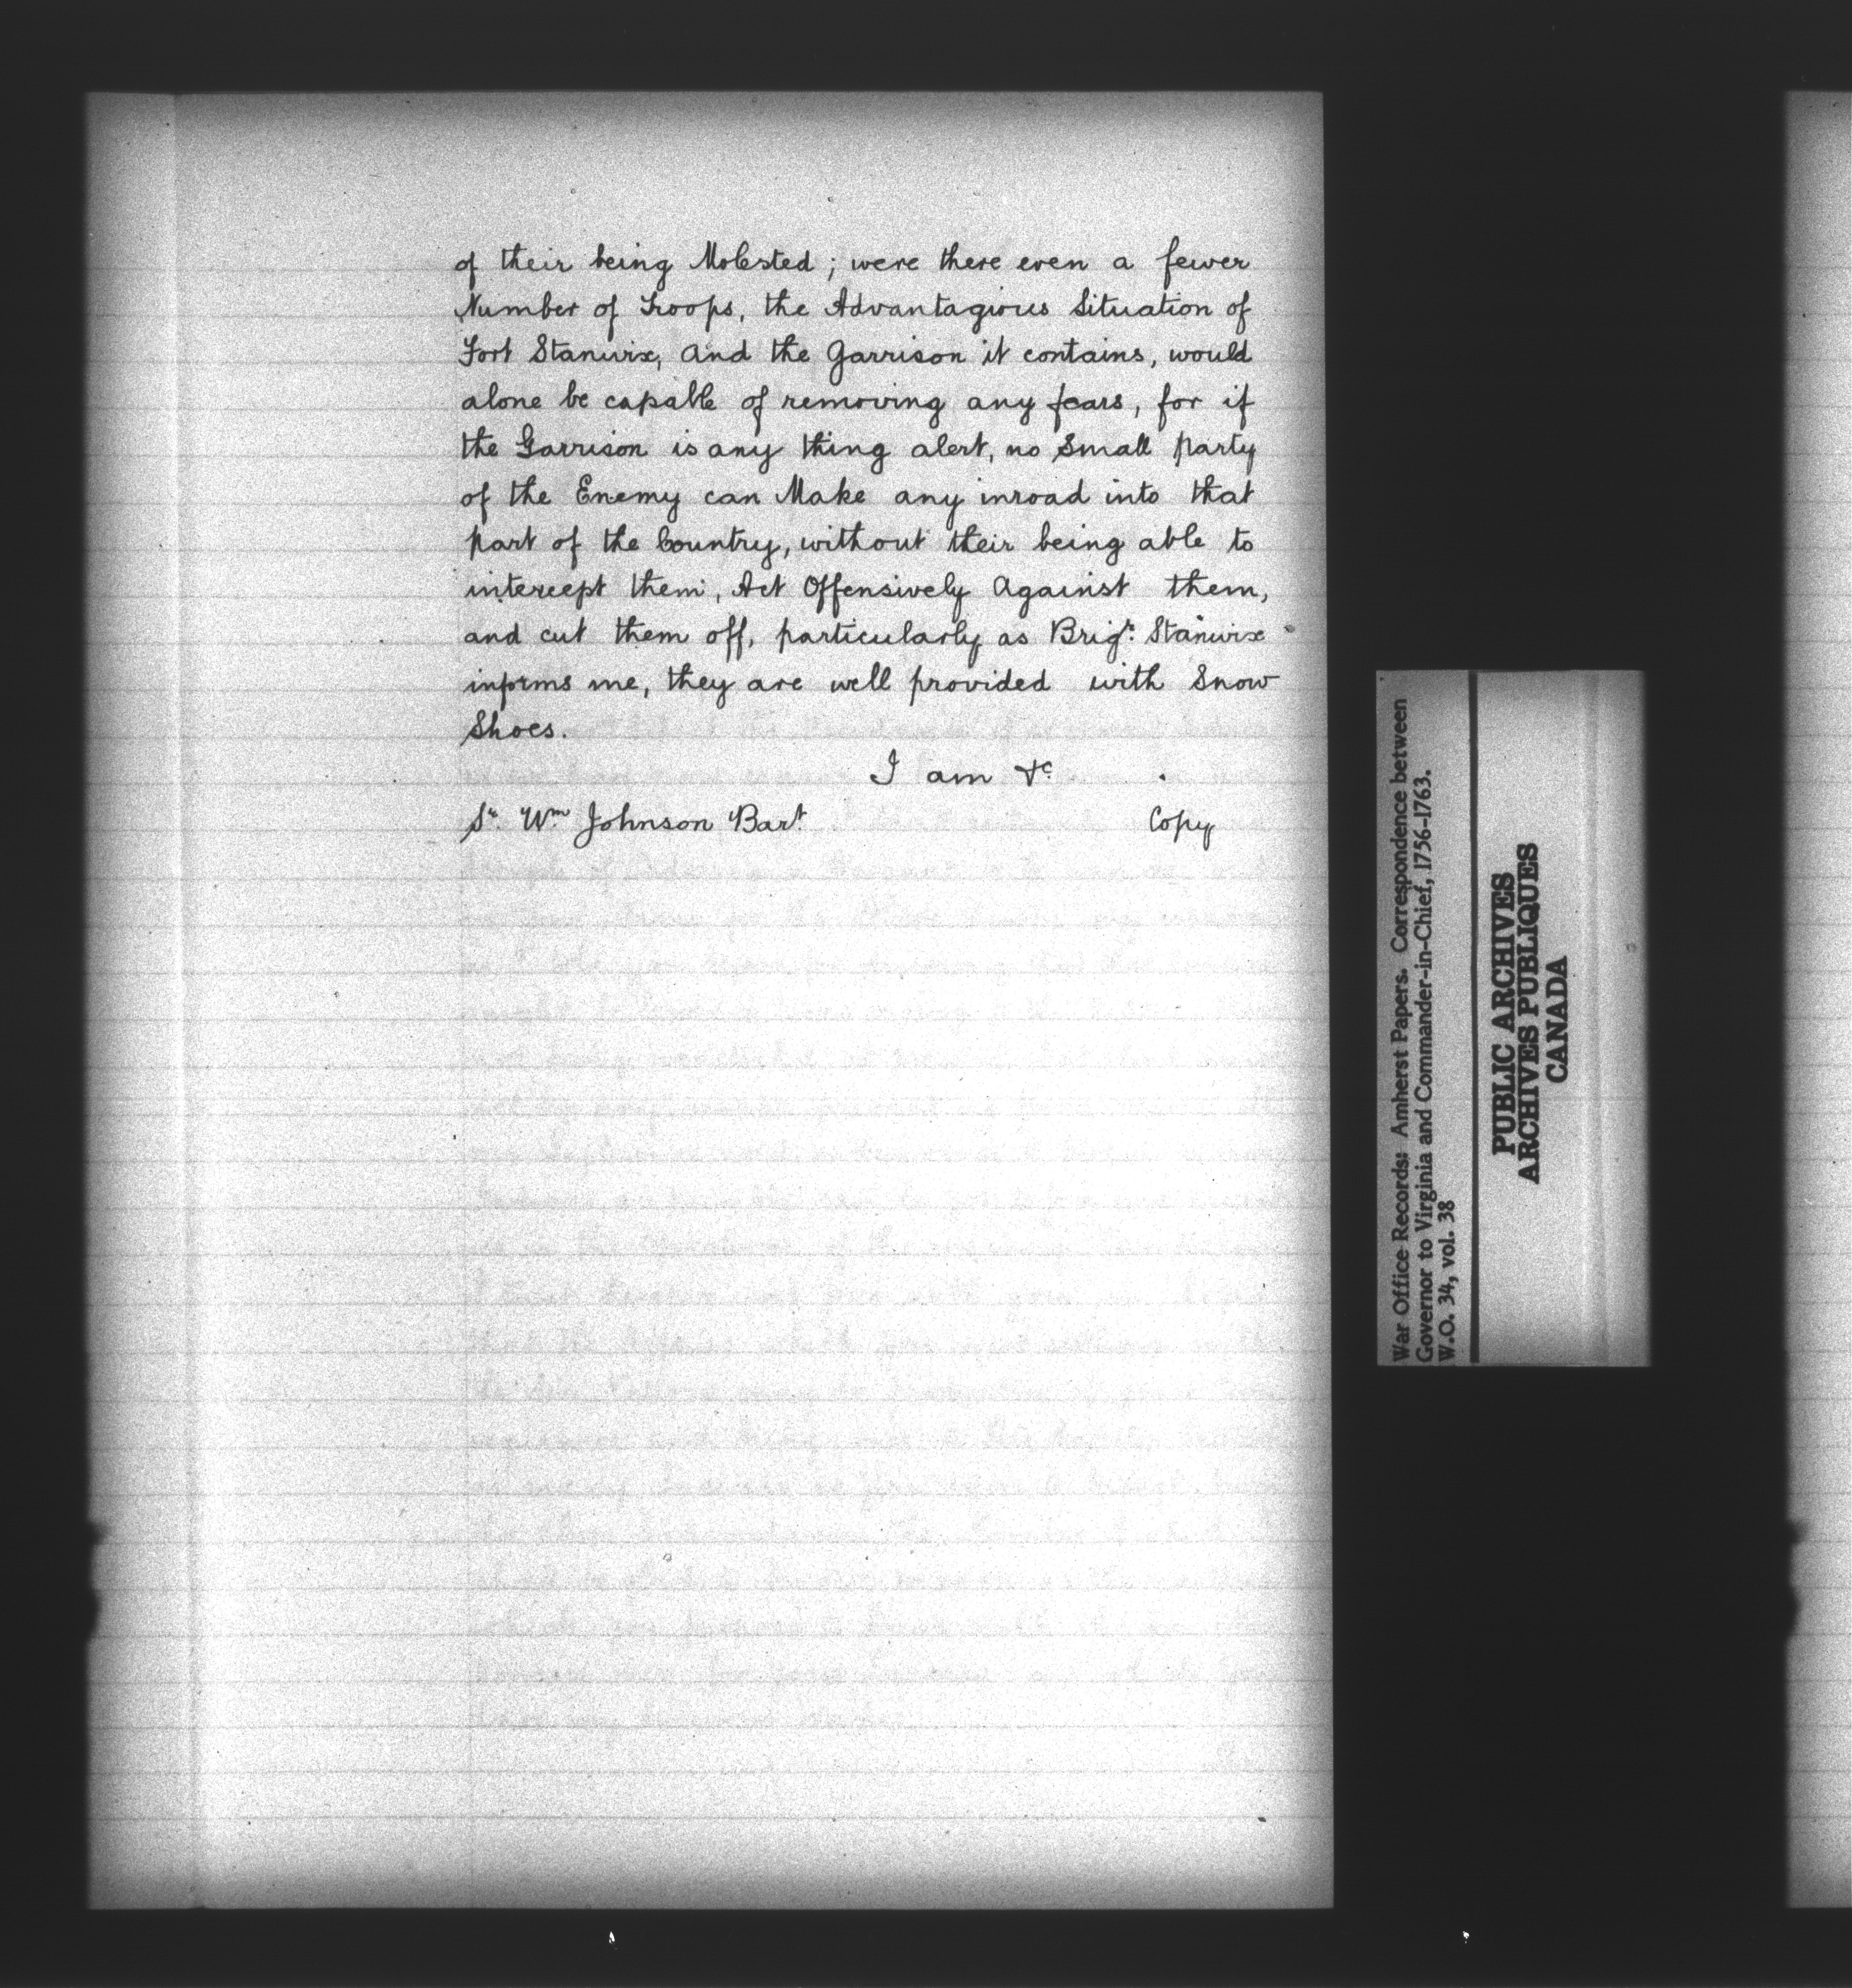 of their being Molested; were there even a fewer
Number of Troops, the Advantagious Situation of
Fort Stanwix, And the Garrison it contains, would
alone be capable of removing any fears, for if
the Garrison is any thing alert, no Small party
of the Enemy can Make any inroad into that
part of the Country, without their being able to
intercept them, Act Offensively Against them,
and cut them off, particularly as Brigr. Stanwix
informs me, they are well provided with Snow
Shoes.
I am &c
Sr. Wm Johnson Bart.
Copy
War Office Records: Amherst Papers. Correspondence between
Governor to Virginia and Commander-in-Chief, 1756-1763.
W.O. 34, vol. 38
PUBLIC ARCHIVES
ARCHIVES PUBLIQUES
CANADA